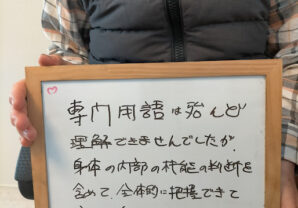 専門用語は殆んど
理解できませんでしたが、
身体の内部の機能の判断を
含めて、全体的に把握できて